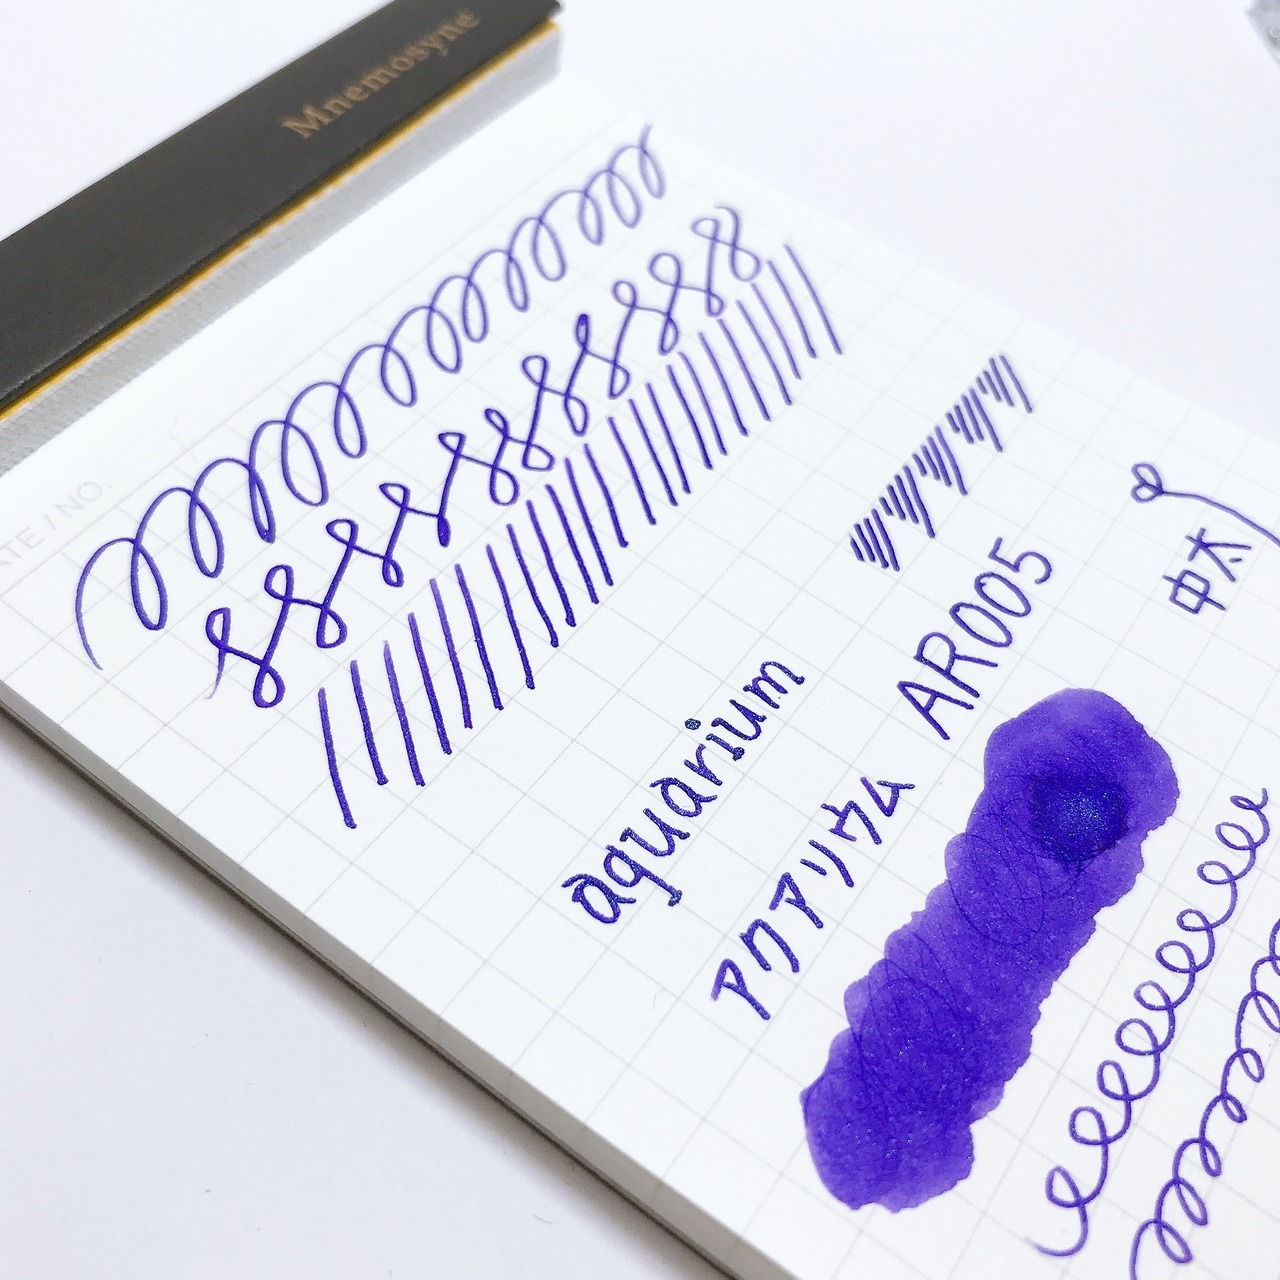 Mnemosyne
ATE / NO.
aquarium
アクアリウム
AR005
中太